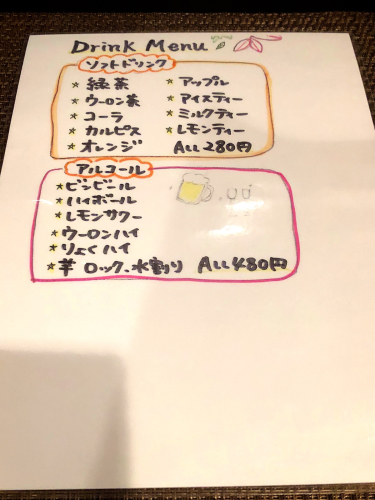 Drink Menu
ソフトドリンク
★ 緑茶 ★ アップル
★ ウーロン茶 ★ アイスティー
★ コーラ ★ ミルクティー
★ カルピス ★ レモンティー
★ オレンジ ALL 280円
アルコール
★ビンビール
★ハイボール
★レモンサワー
★ウーロンハイ
★りょくハイ
★芋 ロック、水割り ALL 480円